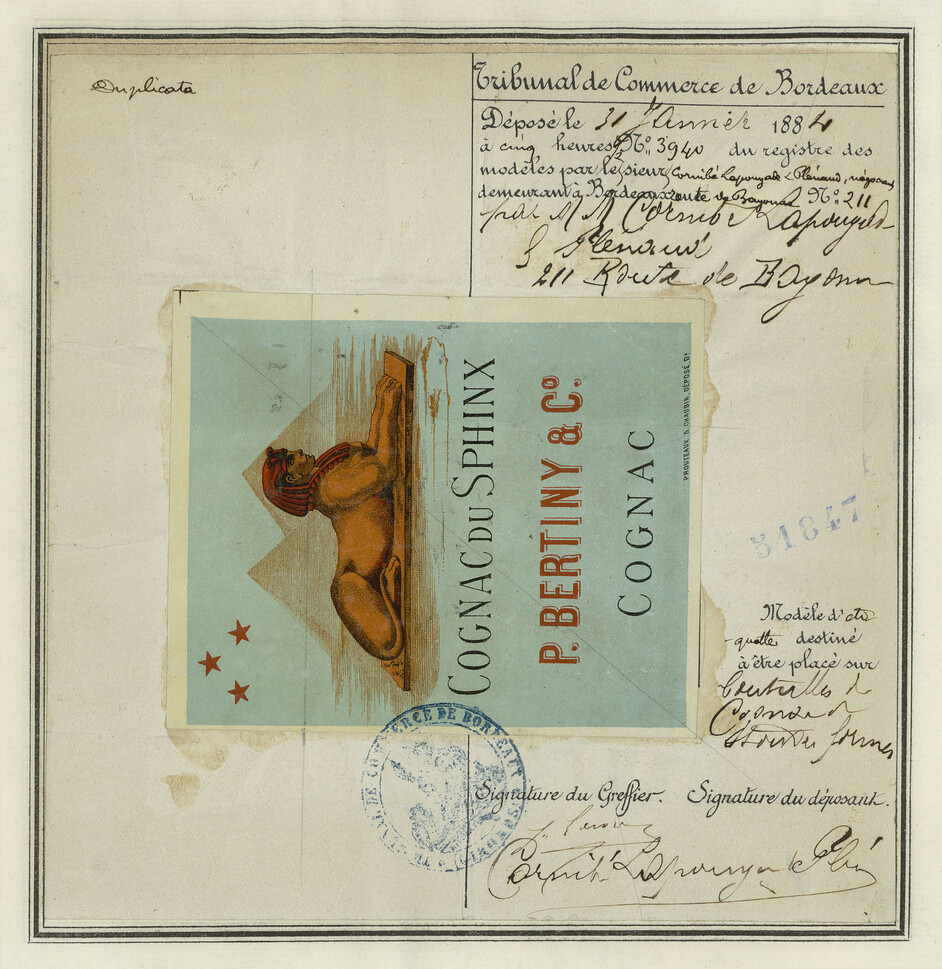 Duplicata
Tribunal de Commerce de Bordeaux
Déposé le 31 Janvier 1884
à cinq heures ½ No. 3940 du registre des
modèles par le sieur Cornibé Lapouyade & Plénaud, négociants
demeurant à Bordeaux route de Bayonne No. 211
par MM Cornibé Lapouyade
& Plénaud
211 Route de Bayonne
COGNAC DU SPHINX
P. BERTINY & Co.
COGNAC
PROUTEAUX & CHAUBIN, DÉPOSÉ, Bx
51847
Modèle d'éti
-quette destiné
à être placé sur
bouteilles de
Cognac de
toutes formes
TRIBUNAL DE COMMERCE DE BORDEAUX
(GIRONDE)
Signature du Greffier. Signature du déposant.
Cornibé Lapouyade